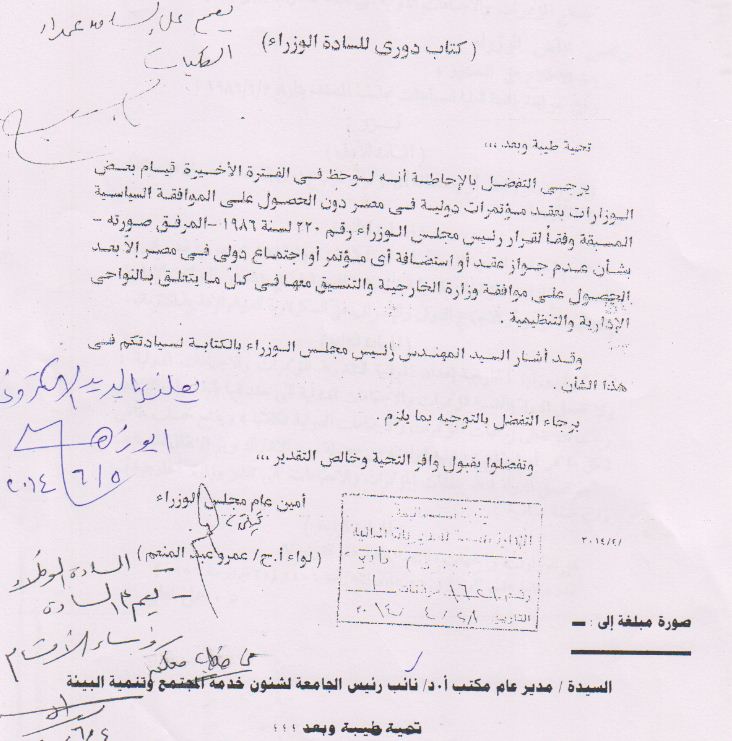 يعمم على السادة عمداء
الكليات
( كتاب دورى للسادة الوزراء)
تحية طيبة وبعد ,,,
يرجى التفضل بالإحاطة أنه لوحظ فى الفترة الأخيرة قيام بعض
الوزارات بعقد مؤتمرات دولية فى مصر دون الحصول على الموافقة السياسية
المسبقة وفقاً لقرار رئيس مجلس الوزراء رقم ٢٢٠ لسنة ١٩٨٦ -المرفق صورته -
بشأن عدم جواز عقد أو استضافة أى مؤتمر أو اجتماع دولى فى مصر إلاّ بعد
الحصول على موافقة وزارة الخارجية والتنسيق معها فى كل ما يتعلق بالنواحى
الإدارية والتنظيمية .
وقد أشار السيد المهندس رئيس مجلس الوزراء بالكتابة لسيادتكم فى
هذا الشأن .
برجاء التفضل بالتوجيه بما يلزم .
وتفضلوا بقبول وافر التحية وخالص التقدير ,,,
يعلن بالبريد الالكترونى
٢٠١٤/٦/٥
أمين عام مجلس الوزراء
(لواء أ.ح/ عمرو عبد المنعم )
٢٠١٤/٤/
رقم
التاريخ: ٢٨ / ٤ / ٢٠١٤
السادة الوكلاء
يعمم على السادة
رؤساء الأقسام
صورة مبلغة إلى : ـ
السيدة / مدير عام مكتب أ.د/ نائب رئيس الجامعة لشئون خدمة المجتمع وتنمية البيئة
تحية طيبة وبعد ,,,